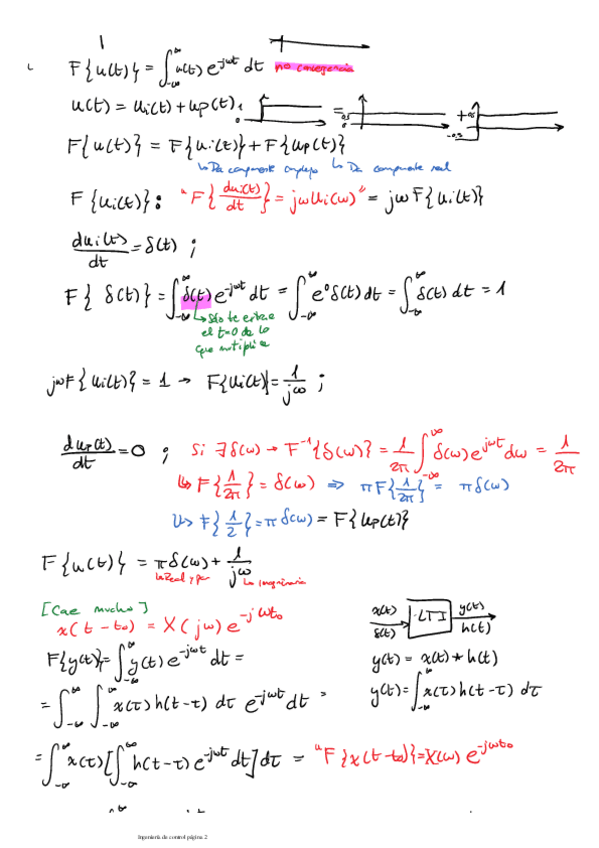 F{u(t)} = ∫_{-∞}^{∞} u(t) e^{-jωt} dt no convergencia
u(t) = ui(t) + up(t).
0.5
0
F{u(t)} = F{ui(t)} + F{up(t)}
↳ Da componente complejo ↳ Da componente real
F{ui(t)}: "F{dui(t)/dt} = jωUi(ω)" = jωF{ui(t)}
dui(t)/dt = δ(t) ;
F{δ(t)} = ∫_{-∞}^{∞} δ(t) e^{-jωt} dt = ∫_{-∞}^{∞} e^0 δ(t) dt = ∫_{-∞}^{∞} δ(t) dt = 1
↳ Sólo te extrae
el t=0 de lo
que multiplica
jωF{ui(t)} = 1 → F{ui(t)} = 1/jω ;
dup(t)/dt = 0 ; Si ∃ δ(ω) → F^{-1}{δ(ω)} = 1/2π ∫_{-∞}^{∞} δ(ω) e^{jωt} dω = 1/2π
↳ F{1/2π} = δ(ω) ⇒ πF{1/2π} = πδ(ω)
↳ F{1/2} = πδ(ω) = F{up(t)}
F{u(t)} = πδ(ω) + 1/jω
↳ Real y par ↳ Imaginaria
[Cae mucho]
x(t-t₀) = X(jω) e^{-jωt₀}
x(t) δ(t) LTI y(t) h(t)
F{y(t)} = ∫_{-∞}^{∞} y(t) e^{-jωt} dt =
y(t) = x(t) * h(t)
= ∫_{-∞}^{∞} ∫_{-∞}^{∞} x(τ) h(t-τ) dτ e^{-jωt} dt =
y(t) = ∫_{-∞}^{∞} x(τ) h(t-τ) dτ
= ∫_{-∞}^{∞} x(τ) [∫_{-∞}^{∞} h(t-τ) e^{-jωt} dt] dτ = "F{x(t-t₀)} = X(ω) e^{-jωt₀}
Ingeniería de control página 2